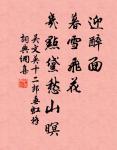 迎醉面
暮雪飛花
幾點黛愁山暝
吳文英十二郎垂虹橋
詞典調集